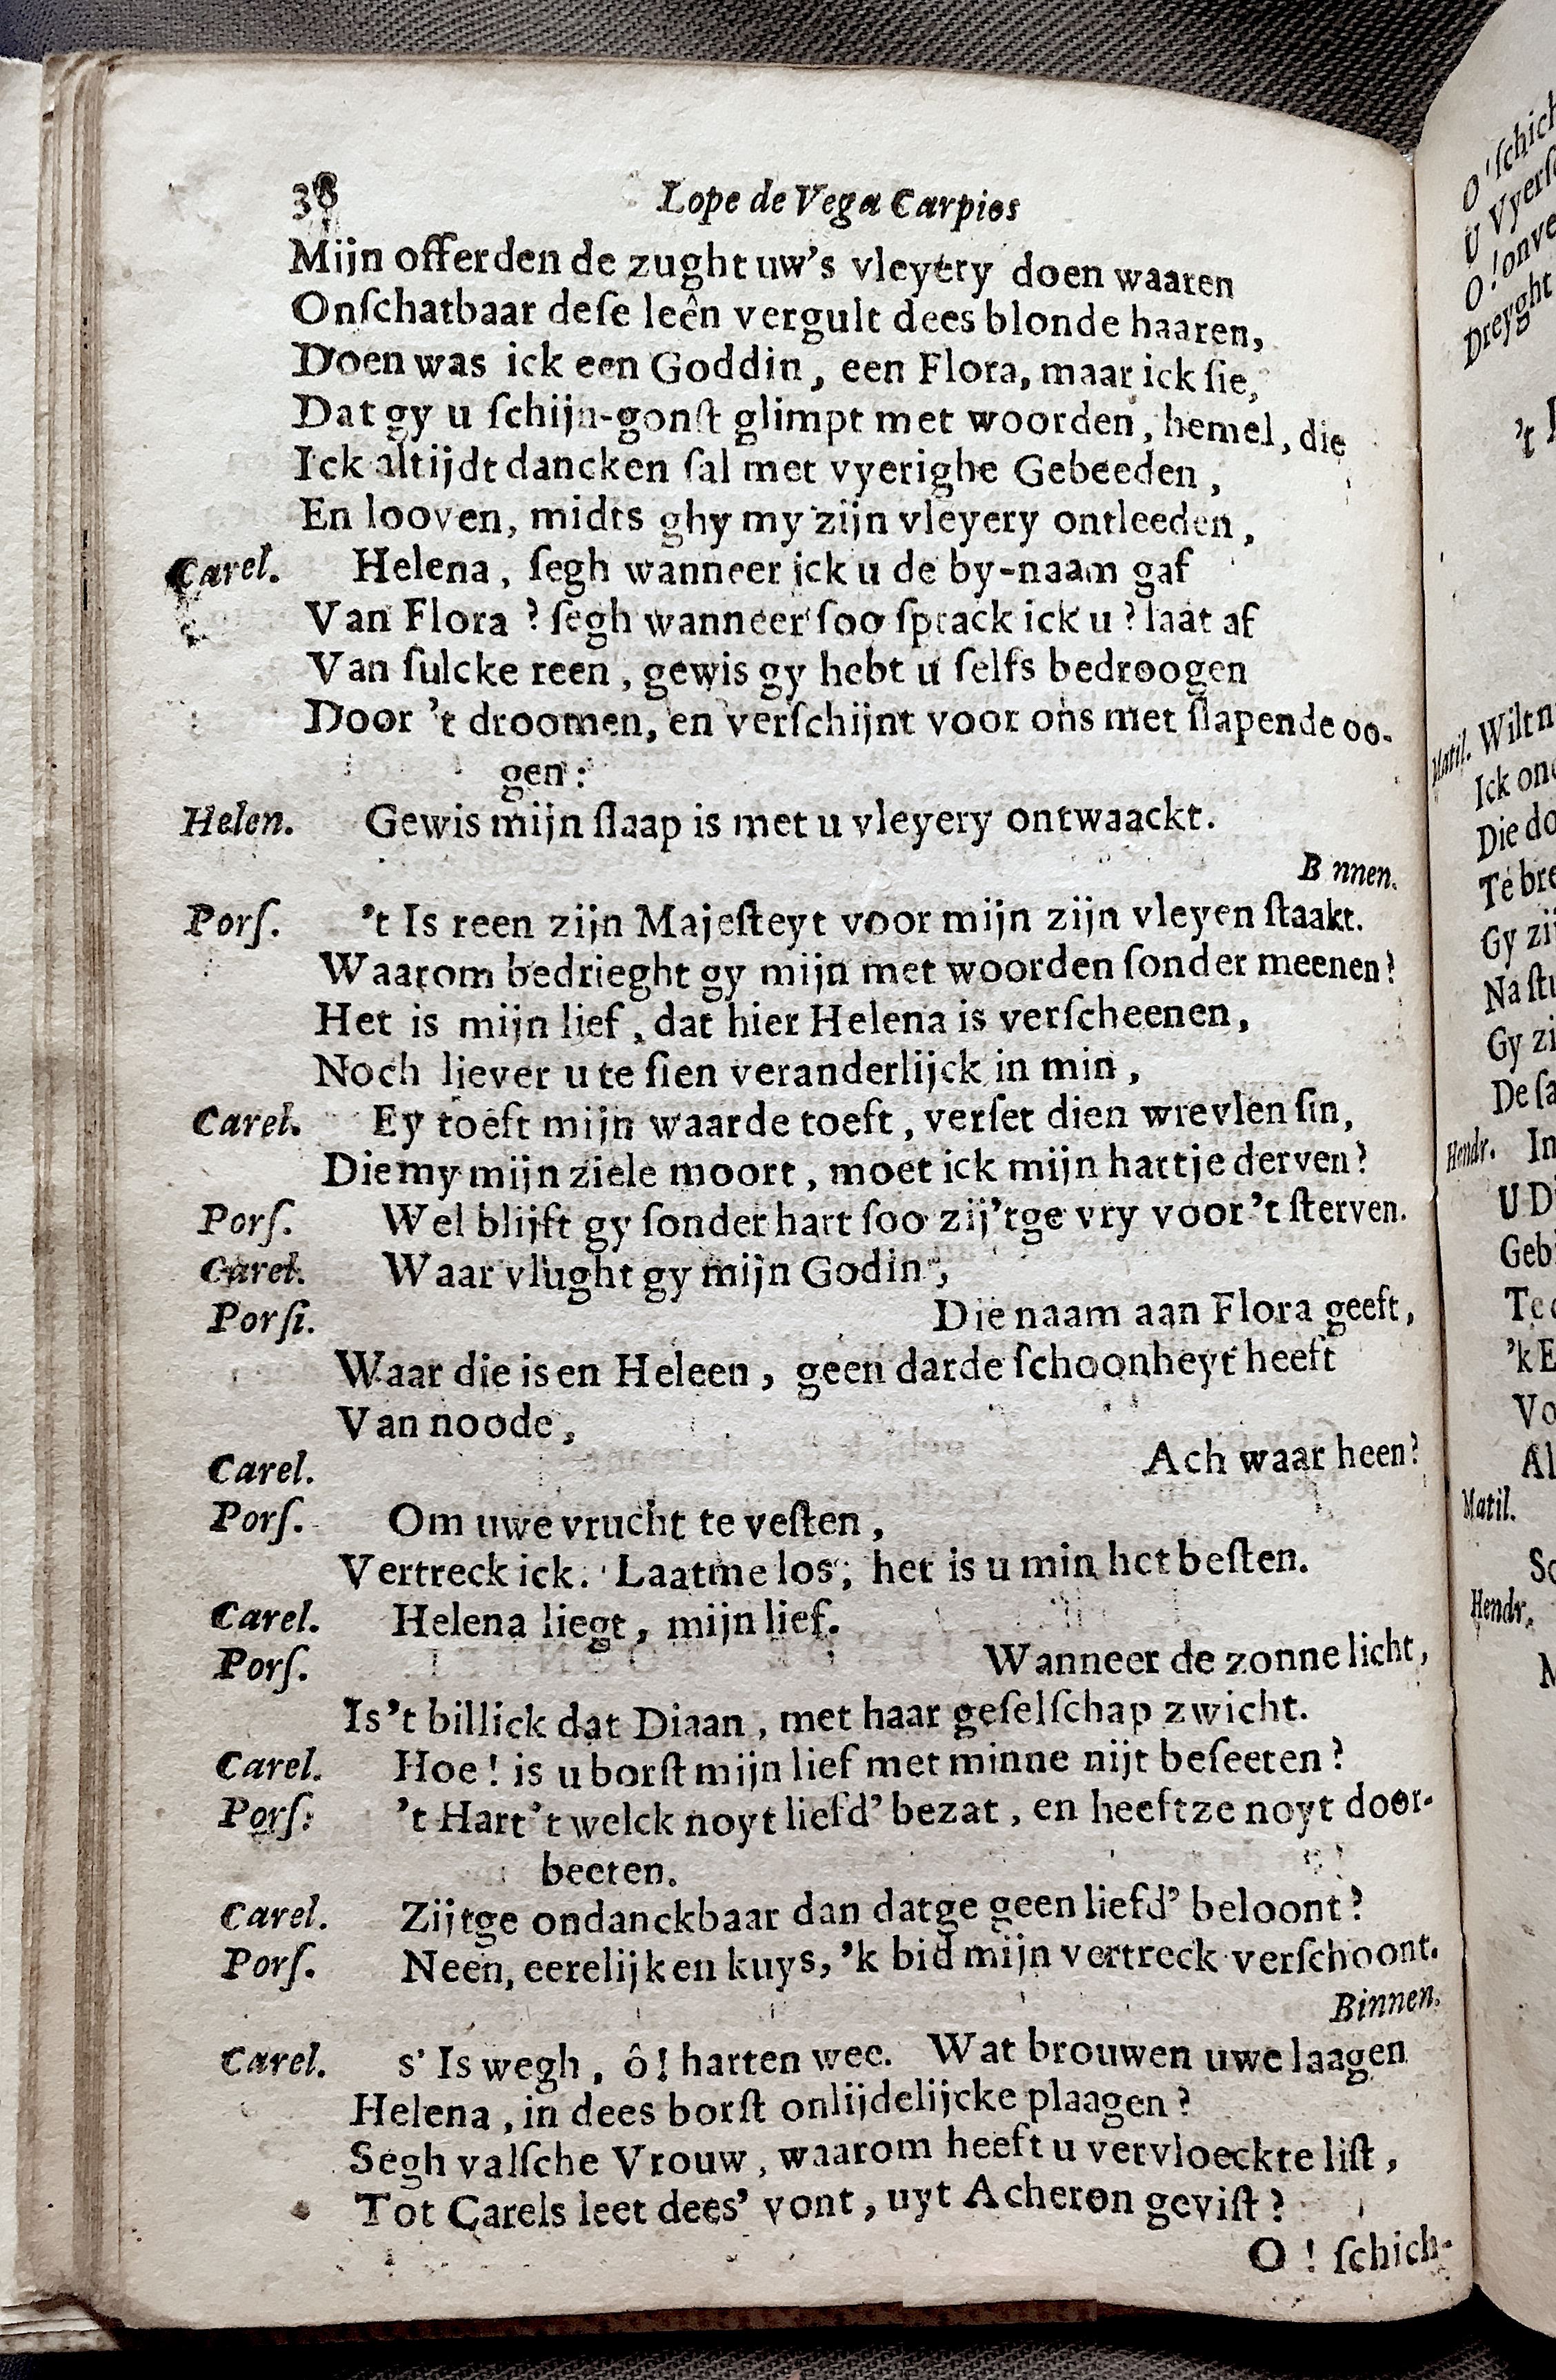 38 Lope de Vega Carpios
Mijn offerden de zught uw's vleyery doen waaren
Onſchatbaar deſe leên vergult dees blonde haaren,
Doen was ick een Goddin, een Flora, maar ick ſie,
Dat gy u ſchijn-gonſt glimpt met woorden, hemel, die
Ick altijdt dancken ſal met vyerighe Gebeeden,
En looven, midts ghy my zijn vleyery ontleeden,
Carel. Helena, ſegh wanneer ick u de by-naam gaf
Van Flora? ſegh wanneer ſoo ſprack ick u? laat af
Van ſulcke reen, gewis gy hebt u ſelfs bedroogen
Door 't droomen, en verſchijnt voor ons met ſlapende oo-
gen:
Helen. Gewis mijn ſlaap is met u vleyery ontwaackt.
B nnen.
Porſ. 't Is reen zijn Majeſteyt voor mijn zijn vleyen ſtaakt.
Waarom bedrieght gy mijn met woorden ſonder meenen?
Het is mijn lief, dat hier Helena is verſcheenen,
Noch liever u te ſien veranderlijck in min,
Carel. Ey toeft mijn waarde toeft, verſet dien wrevlen ſin,
Die my mijn ziele moort, moet ick mijn hartje derven?
Porſ. Wel blijft gy ſonder hart ſoo zij'tge vry voor 't ſterven.
Carel. Waar vlught gy mijn Godin,
Porſi. Die naam aan Flora geeft,
Waar die is en Heleen, geen darde ſchoonheyt heeft
Van noode,
Carel. Ach waar heen?
Porſ. Om uwe vrucht te veſten,
Vertreck ick. Laatme los; het is u min het beſten.
Carel. Helena liegt, mijn lief.
Porſ. Wanneer de zonne licht,
Is 't billick dat Diaan, met haar geſelſchap zwicht.
Carel. Hoe! is u borſt mijn lief met minne nijt beſeeten?
Porſ: 't Hart 't welck noyt liefd' bezat, en heeftze noyt door-
beeten.
Carel. Zijtge ondanckbaar dan datge geen liefd' beloont?
Porſ. Neen, eerelijk en kuys, 'k bid mijn vertreck verſchoont.
Binnen.
Carel. s' Is wegh, ô! harten wee. Wat brouwen uwe laagen
Helena, in dees borſt onlijdelijcke plaagen?
Segh valſche Vrouw, waarom heeft u vervloeckte liſt,
Tot Carels leet dees' vont, uyt Acheron geviſt?
O! ſchich-
O! ſchich
U Vyerſ
O! onve
Dreyght
't
Matil. Wilt n
Ick on
Die do
Te bre
Gy zij
Na ſtu
Gy zi
De ſa
Hendr. In
U D
Geb
Te
'k E
Vo
Al
Matil.
So
Hendr.